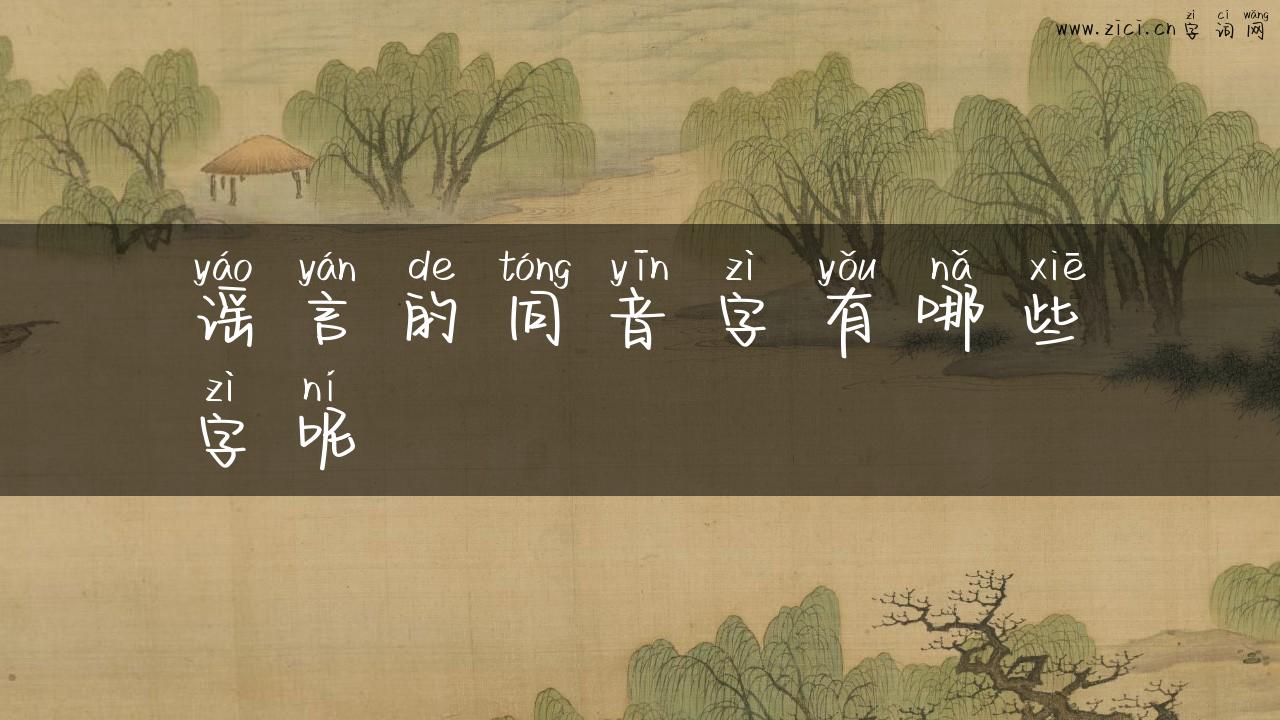 zì cí wǎng
www.zici.cn 字 词 网
yáo yán de tóng yīn zì yǒu nǎ xiē
谣 言 的 同 音 字 有 哪 些
zì ní
字 呢